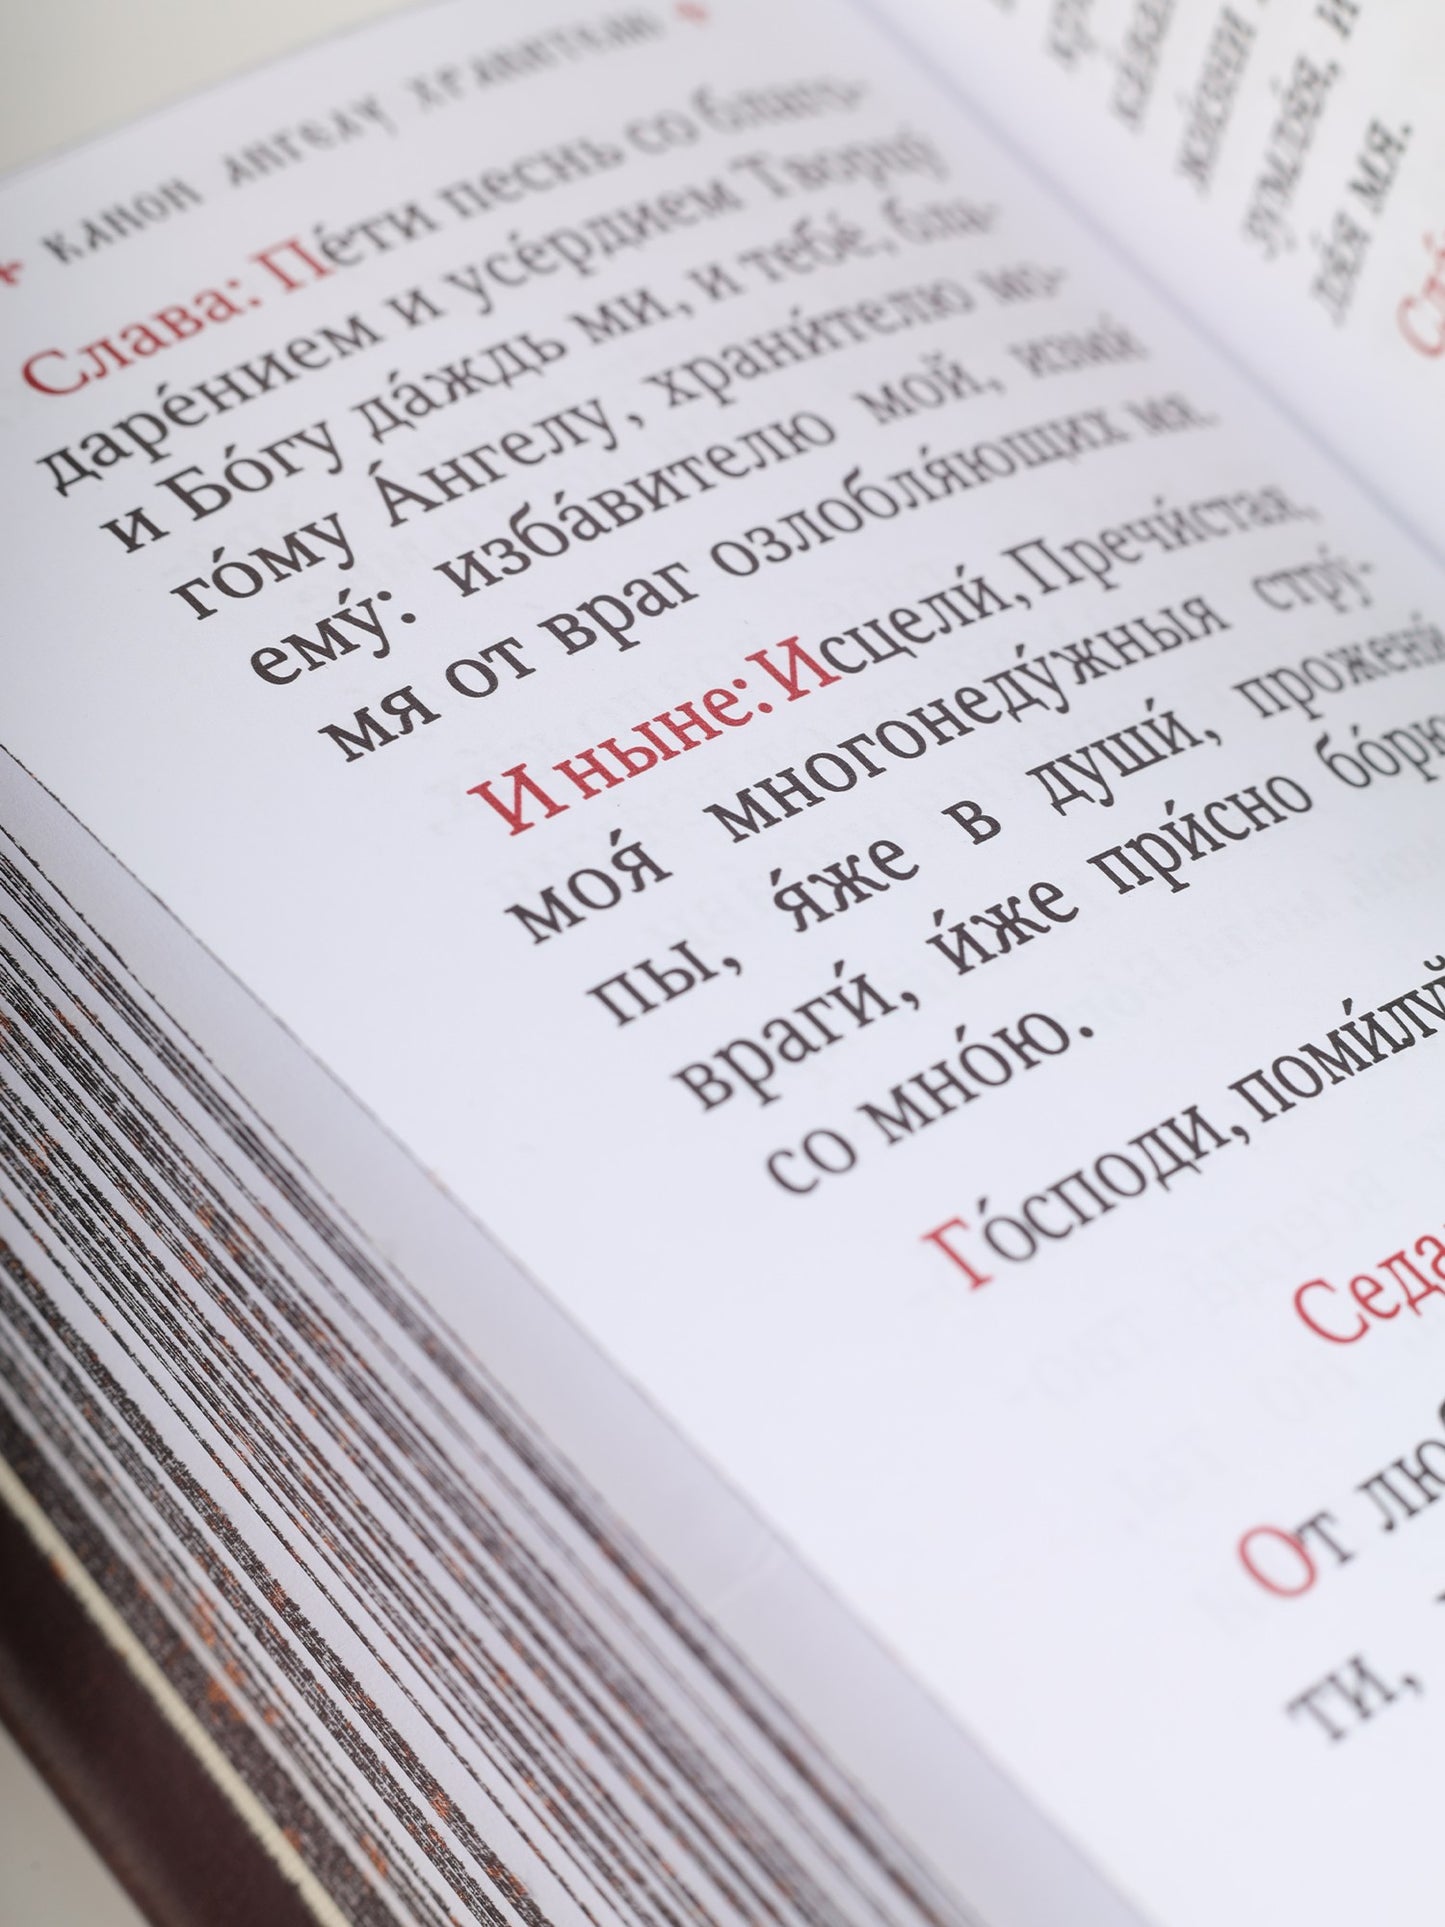 КАНОН АНГЕЛУ ХРАНИТЕЛЮ
Слава: Пе́ти песнь со благо-
даре́нием и усе́рдием Творцу́
и Бо́гу да́ждь ми, и тебе́, бла-
го́му А́нгелу, храни́телю мо-
ему́: изба́вителю мой, изми́
мя от враг озлобля́ющих мя.
И ныне: Исцели́, Пречи́стая,
моя́ многонеду́жныя стру́-
пы, я́же в души́, прожени́
враги́, и́же при́сно бо́рю
со мно́ю.
Го́споди, поми́луй
Седа
От люб
ти,
жи́зни
дя́я мя.